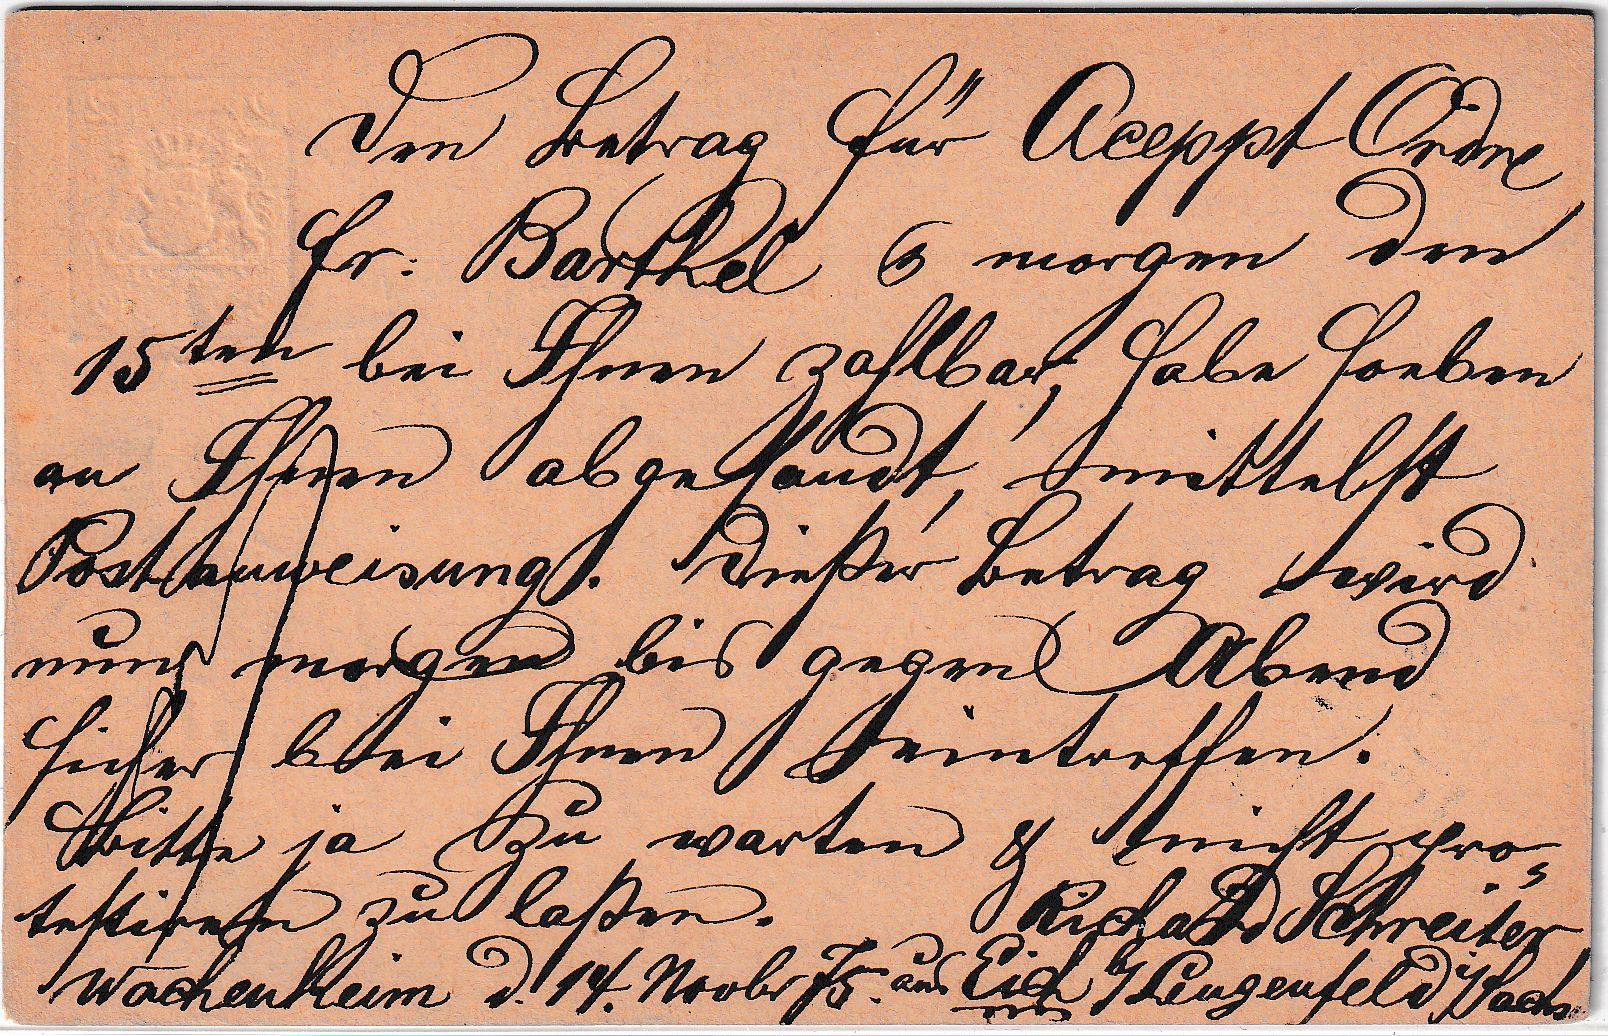 Den Betrag für Aceppt Ordre
fr. Barthel morgen den
15ten bei Ihnen zahlbar, habe soeben
an Ihnen abgesandt, mittelst
Postanweisung. Dießer Betrag wird
nun morgen bis gegen Abend
sicher bei Ihnen eintreffen.
Bitte ja zu warten & nicht pro-
testiren zu laßen. Richard Schreiter
Wachenheim d. 14. Novbr 75. aus Eich b/ Lengenfeld i/ Sachs